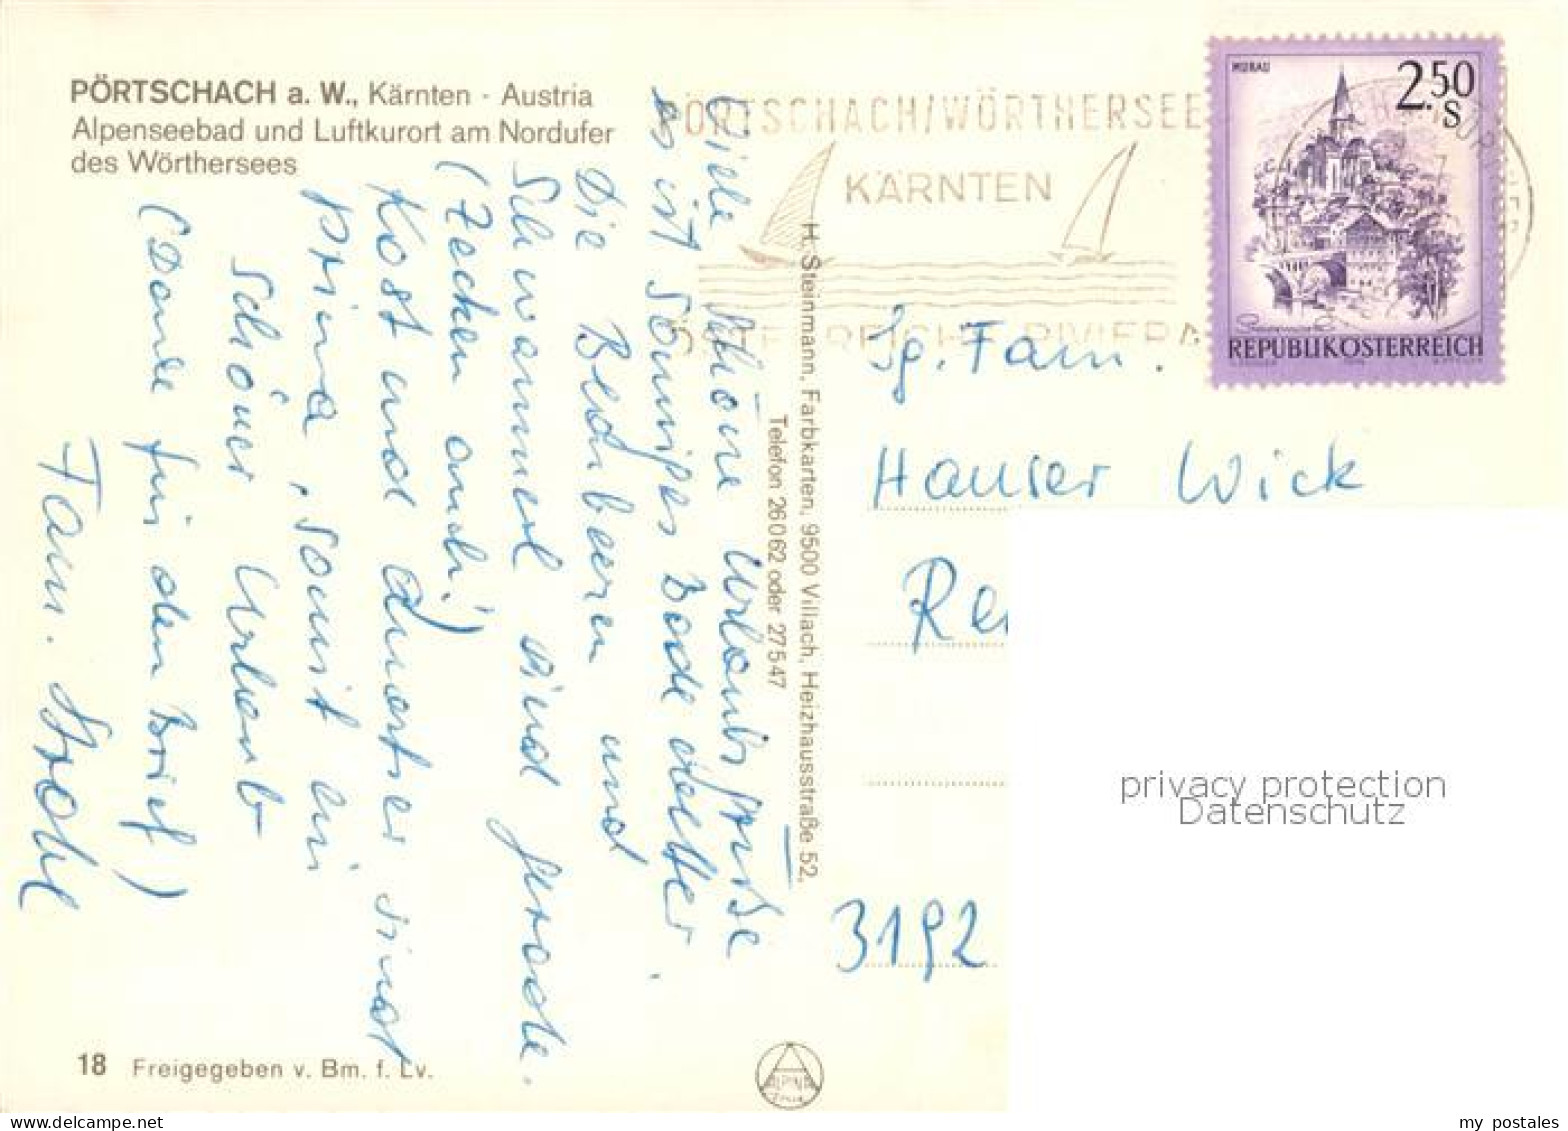 PÖRTSCHACH a. W., Kärnten - Austria
Alpenseebad und Luftkurort am Nordufer
des Wörthersees
Viele schöne Urlaubsgrüße
es ist sonniges Badewetter.
Die Bednbeeren und
Schwammerl sind gerade.
(Zecken auch!)
Kost und Quartier sind
prima, somit ein
schöner Urlaub
(Danke für den Brief)
Fam. Strohl
H. Steinmann, Farbkarten, 9500 Villach, Heizhausstraße 52,
Telefon 26062 oder 27547
ÖRTSCHACH/WÖRTHERSEE
KÄRNTEN
RIVIERA
MURAU
2.50
S
REPUBLIK ÖSTERREICH
Sg. Fam.
Hauser Wick
Re
3192
privacy protection
Datenschutz
18 Freigegeben v. Bm. f. Lv.
ALPINA
my postales